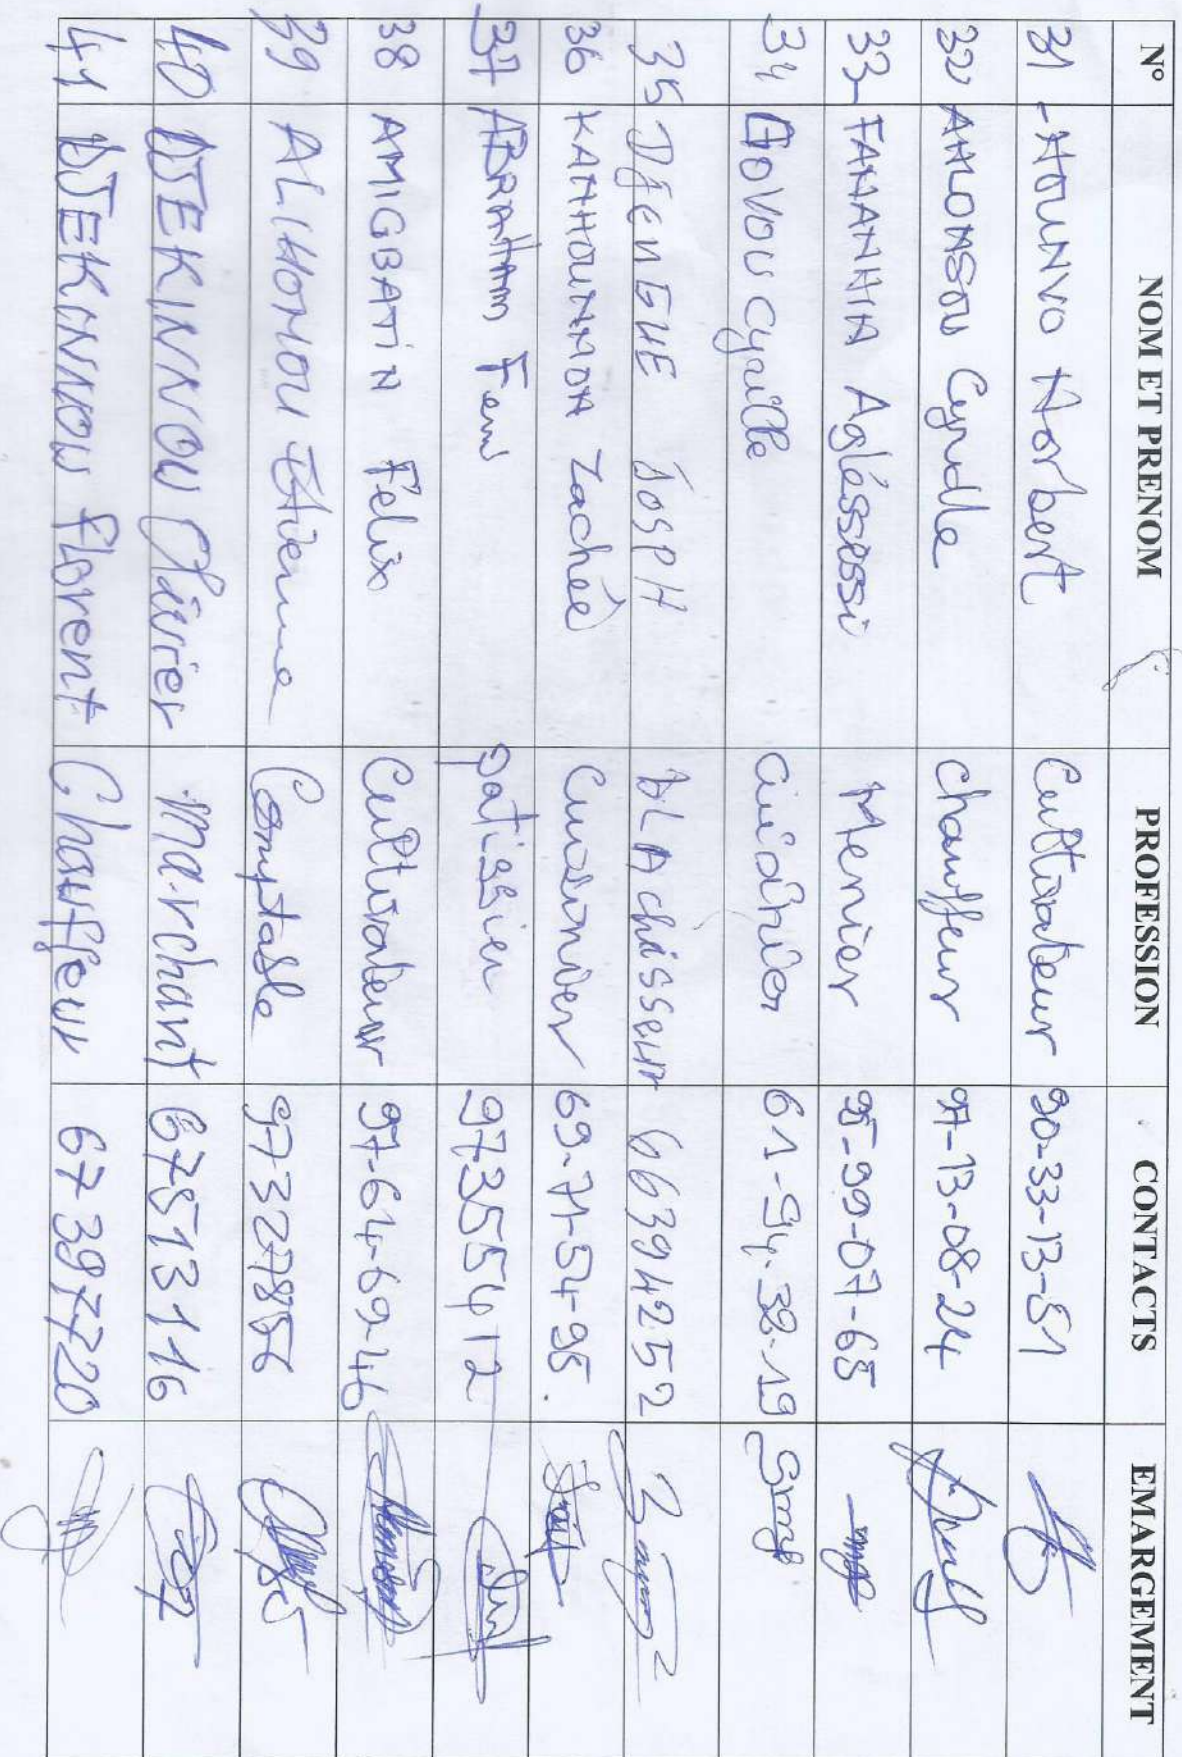 N° NOM ET PRENOM PROFESSION CONTACTS EMARGEMENT
31 -HOUNVO Norbert Cultivateur 90-33-13-51
32 AHLONSOU Cyrille chauffeur 97-13-08-24
33- FANANHIN Aglessessi Menier 95-99-07-65
34 GOVOU Cyrille 61-94-32-19
35 DJENGUE JOSPH bLAchisseur 66394252
36 KANHOUNNON Zachée Cuisinier 69-71-54-95.
37 ABRAHAM Femi patissier 97355412
38 AMIGBATIN Felix Cultivateur 97-64-69-46
39 ALIHONOU Etienne Comptable 97327856
40 DJEKINNOU Olivier Marchant 67513116
41 DJEKINNOU florent Chauffeur 67397720